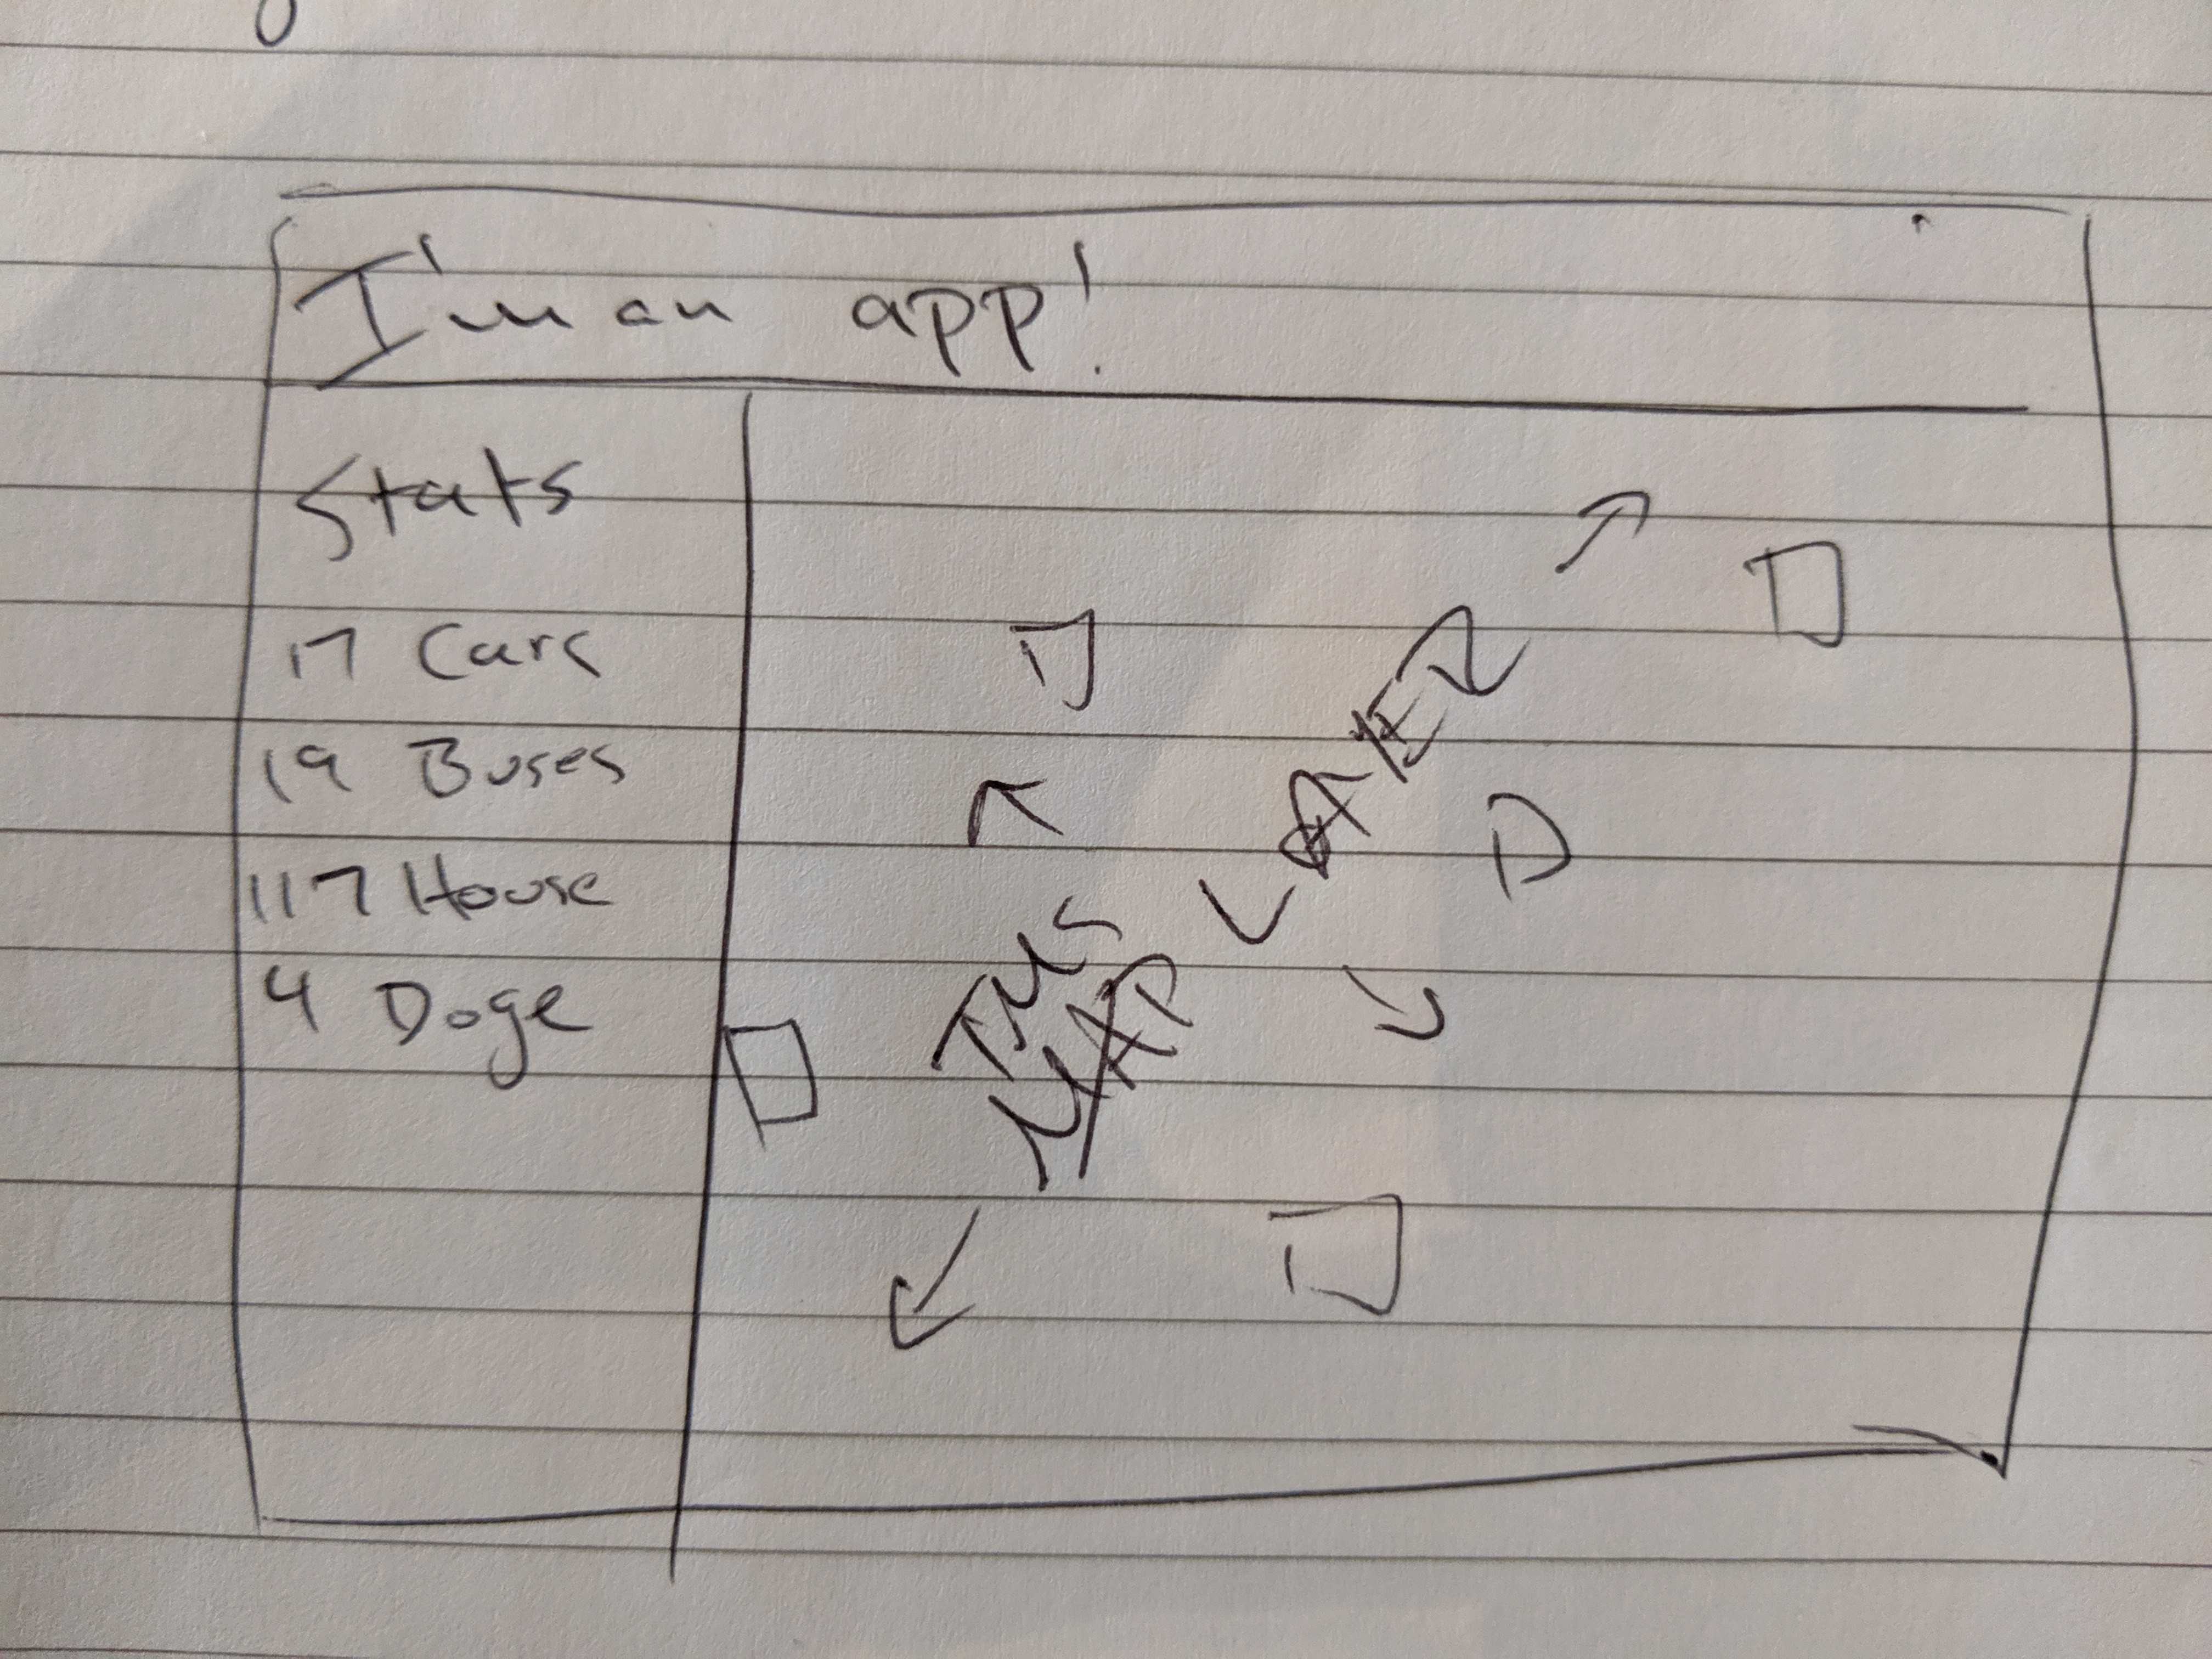 I'm an app!
Stats
17 Cars
19 Buses
117 House
4 Doge
TMS
MAP LAYER